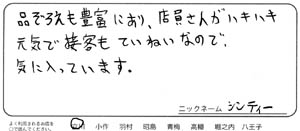 品ぞろえも豊富にあり、店員さんがハキハキ
元気で接客もていねいなので、
気に入っています。
ニックネーム シンディー
よく利用されるお店を
○で囲んでください。
小作 羽村 昭島 青梅 高幡 堀之内 八王子